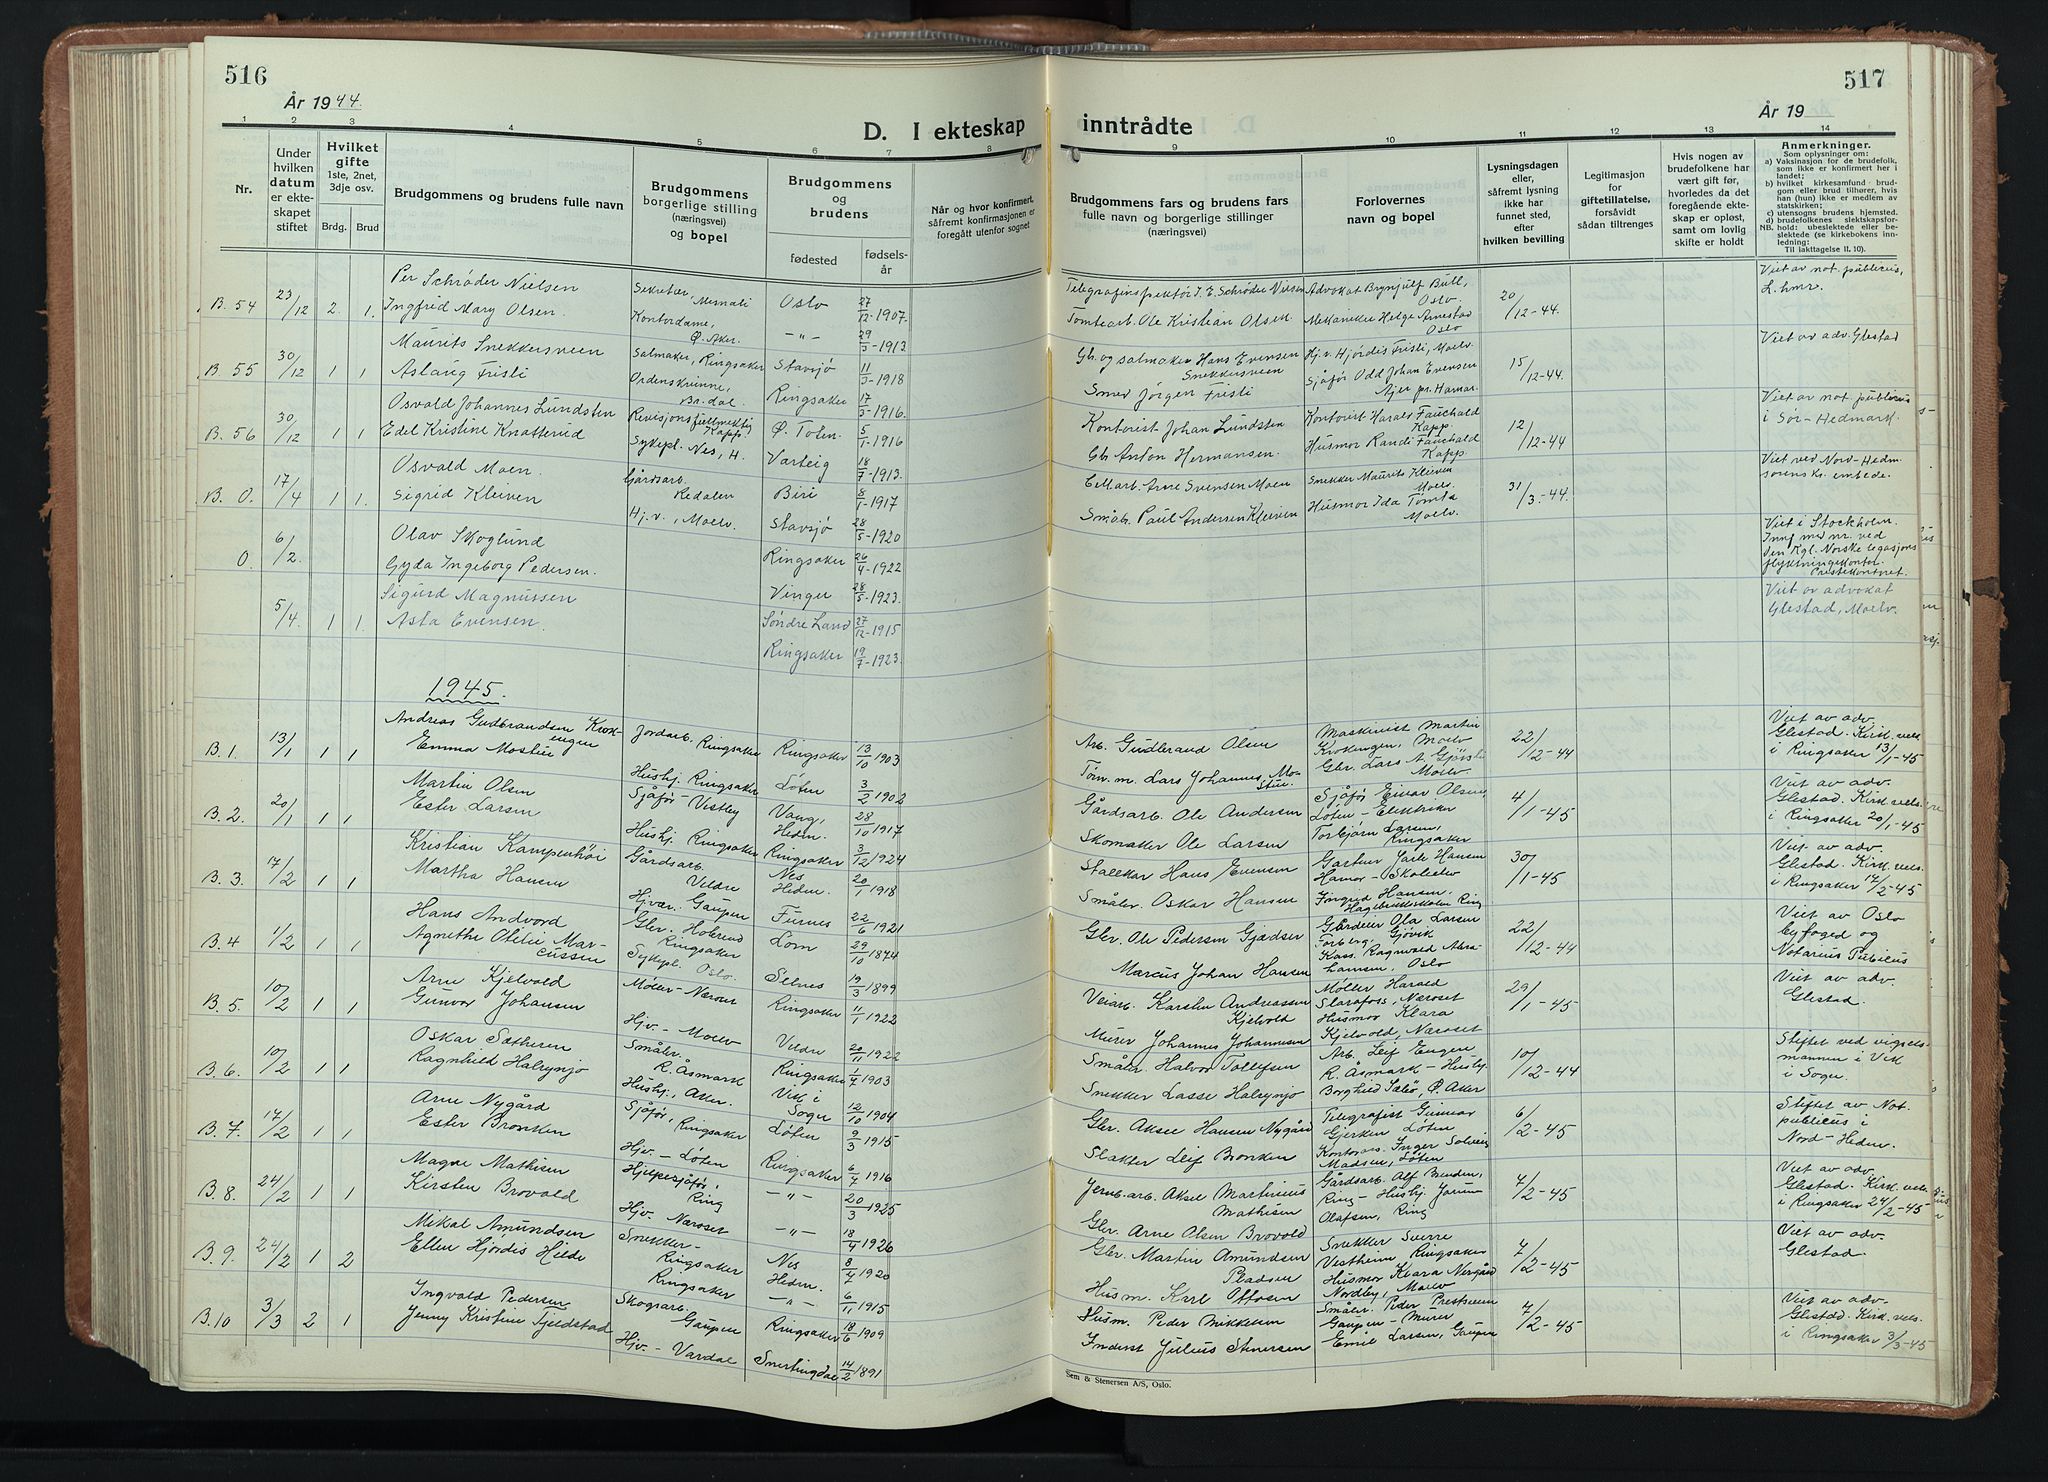 516
År 1944.
D. I ekteskap
1
2
3
4
5
6
7
8
Nr.
Under hvilken datum er ekteskapet stiftet
Hvilket gifte 1ste, 2net, 3dje osv.
Brdg.
Brud
Brudgommens og brudens fulle navn
Brudgommens borgerlige stilling (næringsvei) og bopel
Brudgommens og brudens
fødested
fødselsår
Når og hvor konfirmert, såfremt konfirmasjonen er foregått utenfor sognet
B. 54 23/12 2. 1. Per Schrøder Nielsen Sekretær, Mesnali Oslo 27/12-1907.
Ingfrid Mary Olsen. Kontordame, Ø. Aker. -"- 29/3-1913.
B. 55 30/12 1 1 Maurits Snekkersveen Salmaker, Ringsaker Stavsjø 11/3-1918
Aslaug Fristi Ordenskvinne, Br.dal. Ringsaker 17/3-1916.
B. 56 30/12 1 1 Osvald Johannes Lundsten Revisjonsfullmektig Kapp. Ø. Toten. 5/1-1916
Edel Kristine Knatterud Sykepl. Nes, H. Varteig 18/7-1913.
B. 0. 17/4 1 1. Osvald Moen. Gårdsarb. Redalen Biri 8/1-1917
Sigrid Kleiven Hj.v., Moelv. Stavsjø 28/5-1920
0. 6/2. Olav Skoglund Ringsaker 26/4-1922
Gyda Ingeborg Pedersen. Vinger 28/5-1923.
5/4. 1 1. Sigurd Magnussen Søndre Land 27/12-1915
Asta Evensen. Ringsaker 19/7-1923.
1945.
B. 1. 13/1 1 1 Andreas Gudbrandsen Krokengen Jordarb. Ringsaker Ringsaker 13/10 1903
Emma Mostue Hushj. Ringsaker Løten 3/2 1902
B. 2. 20/1 1 1 Martin Olsen Sjåfør Vestby Vang, Hedm. 28/10 1917
Ester Larsen Hushj. Ringsaker Ringsaker 3/12 1924
B. 3. 17/2 1 1 Kristian Kampenhøi Gårdsarb. Veldre Nes Hedm. 20/1 1918
Martha Hansen Hjvær. Gaupen Furnes 22/6 1921
B. 4 1/2 1 1 Hans Andvord Gbr. Ringsaker Lom 29/10 1874
Agnethe Otilie Marcussen Sykepl. Oslo. Selnes 19/3 1899
B. 5. 10/2 1 1 Arne Kjelvold Møller - Næroset Ringsaker 11/1 1922
Gunvor Johansen Hjv. - Moelv Veldre 20/11 1922
B. 6. 10/2 1 1 Oskar Sætheren Småbr. R. Åsmark Ringsaker 1/4 1903
Ragnhild Halrynjo Hushj. Aker. Vik i Sogn 12/10 1904
B. 7. 17/2 1 1 Arne Nygård Sjåfør, Ringsaker Løten 9/3 1915
Ester Bronken Hjv. - Løten Ringsaker 6/4 1916
B. 8. 24/2 1 1 Magne Mathisen Hjelpesjåfør, Ring -"- 20/3 1925
Kirsten Brovald Hjv. Næroset -"- 18/4 1926
B. 9. 24/2 1 2 Mikal Amundsen Snekker - Ringsaker Nes Hedm. 8/4 1920
Ellen Hjørdis Hilde Ringsaker -"- 6/11 1915
B. 10 3/3 2 1 Ingvald Pedersen Skogsarb. Gaupen Ringsaker 18/6 1909
Jenny Kristine Fjeldstad Hjv. - Vardal Snertingdal 14/2 1891
517
År 19
inntrådte
9
10
11
12
13
14
Brudgommens fars og brudens fars fulle navn og borgerlige stillinger (næringsvei)
Forlovernes navn og bopel
Lysningsdagen eller, såfremt lysning ikke har funnet sted, efter hvilken bevilling
Legitimasjon for giftetillatelse, forsåvidt sådan tiltrenges
Hvis nogen av brudefolkene har vært gift før, hvorledes da det foregående ekteskap er opløst, samt om lovlig skifte er holdt
Anmerkninger.
Som oplysninger om:
a) Vaksinasjon for de brudefolk, som ikke er konfirmert her i landet;
b) hvilket kirkesamfund brudgom eller brud tilhører, hvis han (hun) ikke er medlem av statskirken;
c) utensogns brudens hjemsted.
d) brudefolkenes slektskapsforhold: ubeslektede eller beslektede (se kirkebokens innledning:
NB. Til iakttagelse II. 10).
Telegrafinspektør J. E. Schrøder Nielsen Advokat Brynjulf Bull, Oslo. 20/12-44. Viet av not. publicus, L.hmr.
Tomtearb. Ole Kristian Olsen. Mekaniker Helge Arnestad Oslo
Gb. og salmaker Hans Evensen Snekkersveen Hj.v. Hjørdis Fristi, Moelv. 15/12-44. Viet av adv. Glestad
Smed Jørgen Fristi Sjåfør Odd Johan Evensen Ajer pr. Hamar.
Kontorist Johan Lundsten Kontorist Harald Fauchald Kapp. 12/12-44 Viet av not. publicus i Sør-Hedmark.
Gb. Anton Hermansen. Husmor Randi Fauchald Kapp.
Cellarb. Arne Svensen Moen Snekker Maurits Kleiven Moelv. 31/3.-44. Viet ved Nord-Hedm. sorensk. embede.
Småb. Paul Andersen Kleiven Husmor Ida Tømta Moelv.
Viet i Stockholm. Innf med nr. ved Den Kgl. Norske legasjons flyktningekontor. Prestekontoret.
Viet av advokat Glestad, Moelv.
Arb. Gudbrand Olsen Maskinist Martin Krokengen, Moelv 22/12-44 Viet av adv. Glestad. Kirk. vels. i Ringsaker 13/1-45
Tøm. m. Lars Johannes. Mostue. Gbr. Lars A. Moelv
Gårdsarb. Ole Andersen Sjåfør Einar Olsen, Løten - Elektriker 4/1-45 Viet av adv. Glestad. Kirk. vels. i Ringsaker 20/1-45
Skomaker Ole Larsen Torbjørn Larsen, Ringsaker
Stallkar Hans Evensen Gartner Jarle Hansen Hamar - Skoleelev 30/1-45 Viet av adv. Glestad. Kirk. vels. i Ringsaker 17/2-45
Småbr. Oskar Hansen Ingrid Hansen.
Gbr. Ole Pedersen Gjedser Gårdeier Ola Larsen Forberg, Gjøvik 22/12-44 Viet av Oslo byfoged og Notarius Publicus
Marcus Johan Hansen Kass. Ragnvald Abrahamsen, Oslo
Veiarb. Karsten Andreassen Kjelvold Møller Harald Slarafoss, Næroset 29/1-45 Viet av adv. Glestad.
Murer Johannes Johannesen Husmor Klara Kjelvold, Næroset
Småbr. Halvor Tollefsen Arb. Leif Engen R. Åsmark - Hushj. 10/12-44 Stiftet ved vigselsmannen i Vik i Sogn.
Snekker Lasse Halrynjo Borghild Sæbø, Ø. Aker
Gbr. Aksel Hansen Nygård Telegrafist Gunnar Gjerken Løten 6/2-45 Stiftet av Not. publicus i Nord-Hedm.
Slakter Leif Bronken Kontorass. Inger Solveig Madsen, Løten
Jernb.arb. Aksel Martinius Mathisen Gårdsarb. Alf Ring - Hushj. 7/2-45 Viet av adv. Glestad. Kirk. vels. i Ringsaker 24/2-45
Gbr. Arne Olsen Brovold Olafsen, Ring
Gbr. Martin Amundsen Pladsen Snekker Sverre Vestheim Ringsaker 7/2-45 Viet av adv. Glestad.
Husm. Karl Ottosen Husmor Klara Nergård Nordby, Moelv
Husm. Peder Mikkelsen Småbr. Peder Prestsveen Gaupen - Murer 7/2-45 Viet av adv. Glestad. Kirk. vels. i Ringsaker 3/3-45
Inderst Julius Stenersen Emil Larsen, Gaupen
Sem & Stenersen A/S, Oslo.